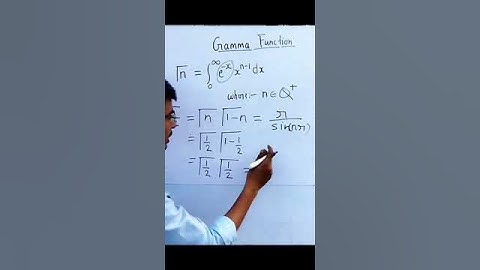 Gamma Function
Γn = ∫₀^∞ e^-x x^n-1 dx
where:- n ∈ Q⁺
= Γn Γ1-n = π/sin(nπ)
= Γ1/2 Γ1-1/2
= Γ1/2 Γ1/2 =